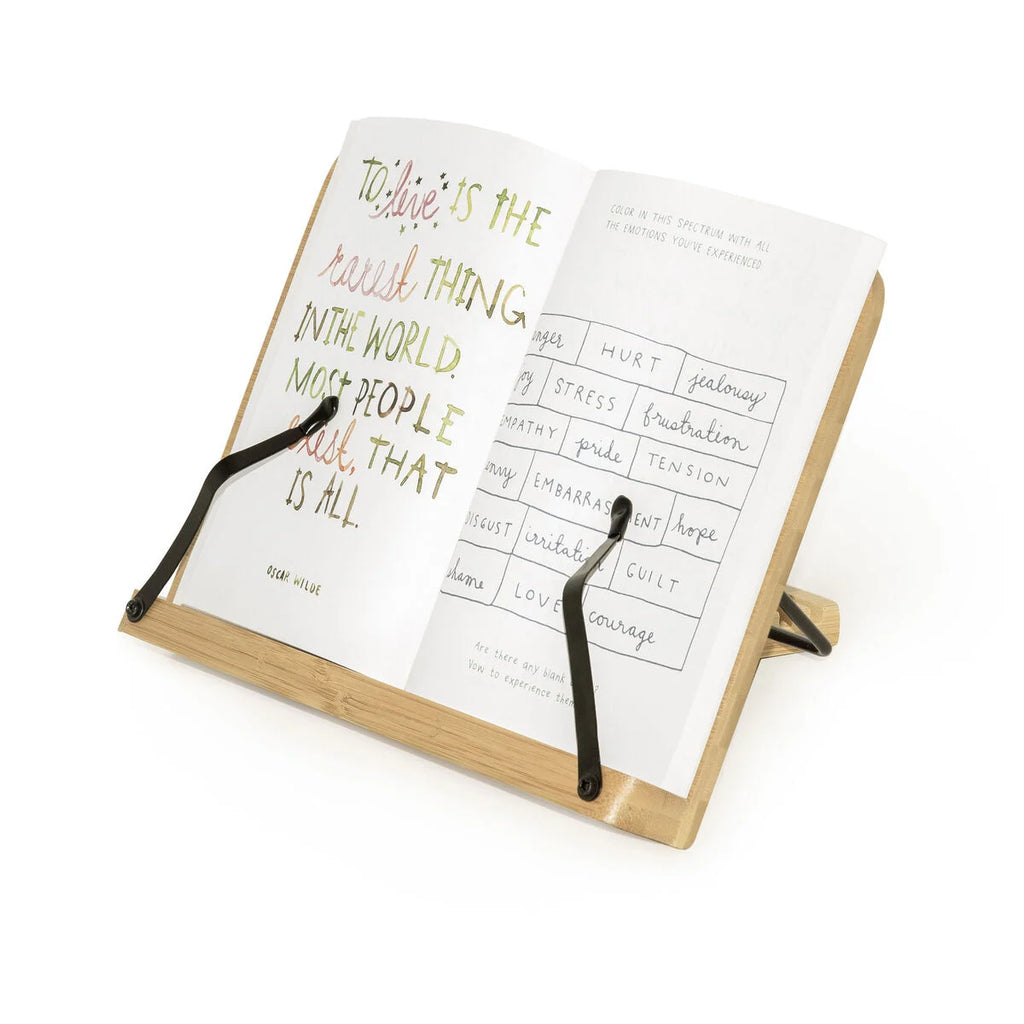 TO live IS THE
rarest THING
IN THE WORLD.
MOST PEOPLE
exist, THAT
IS ALL.
OSCAR WILDE
COLOR IN THIS SPECTRUM WITH ALL
THE EMOTIONS YOU'VE EXPERIENCED
HURT jealousy
STRESS frustration
pride TENSION
hope
GUILT
LOVE courage
Are there any blank
Vow to experience